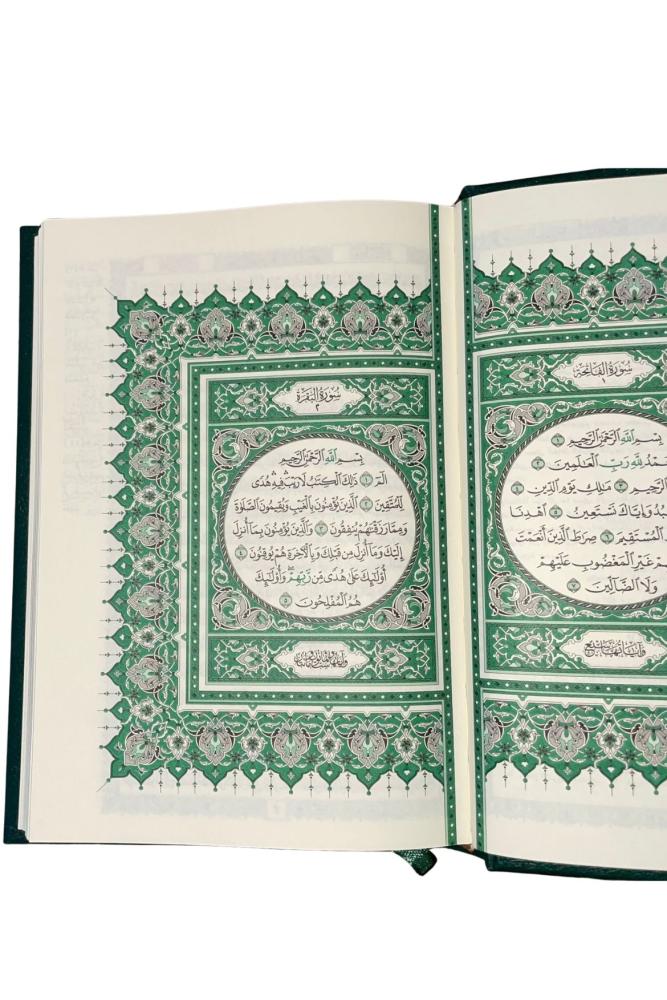 سُورَةُ الْفَاتِحَةِ
١
بِسْمِ اللَّهِ الرَّحْمَٰنِ الرَّحِيمِ ١
مْدُ لِلَّهِ رَبِّ الْعَٰلَمِينَ ٢
الرَّحِيمِ ٣ مَٰلِكِ يَوْمِ الدِّينِ ٤
بُدُ وَإِيَّاكَ نَسْتَعِينُ ٥ اهْدِنَا
الْمُسْتَقِيمَ ٦ صِرَٰطَ الَّذِينَ أَنْعَمْتَ
هِمْ غَيْرِ الْمَغْضُوبِ عَلَيْهِمْ
وَلَا الضَّالِّينَ ٧
سُورَةُ الْبَقَرَةِ
٢
بِسْمِ اللَّهِ الرَّحْمَٰنِ الرَّحِيمِ
الٓمٓ ١ ذَٰلِكَ الْكِتَٰبُ لَا رَيْبَ ۛ فِيهِ ۛ هُدًى
لِّلْمُتَّقِينَ ٢ الَّذِينَ يُؤْمِنُونَ بِالْغَيْبِ وَيُقِيمُونَ الصَّلَوٰةَ
وَمِمَّا رَزَقْنَٰهُمْ يُنفِقُونَ ٣ وَالَّذِينَ يُؤْمِنُونَ بِمَآ أُنزِلَ
إِلَيْكَ وَمَآ أُنزِلَ مِن قَبْلِكَ وَبِالْءَاخِرَةِ هُمْ يُوقِنُونَ ٤
أُو۟لَٰٓئِكَ عَلَىٰ هُدًى مِّن رَّبِّهِمْ ۖ وَأُو۟لَٰٓئِكَ
هُمُ الْمُفْلِحُونَ ٥